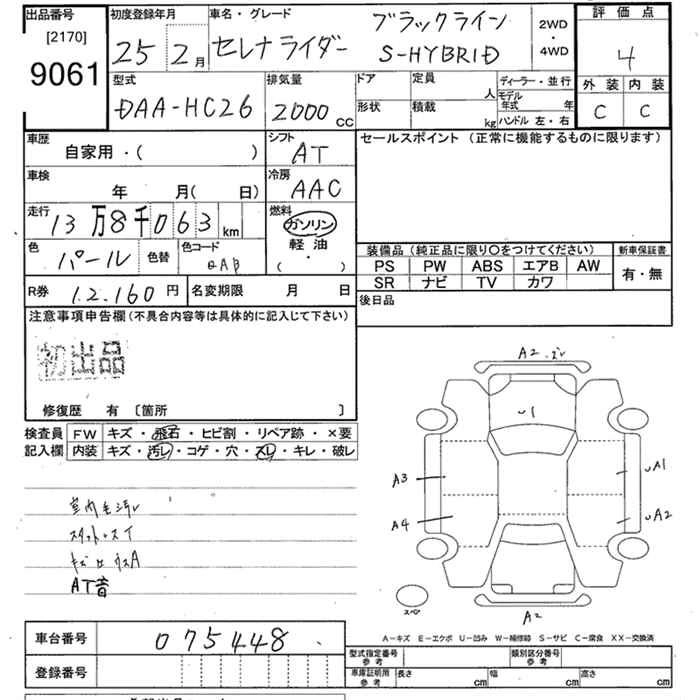 出品番号 初度登録年月 車名・グレード 評価点
[2170] 25 2月 セレナライダー ブラックライン 2WD
9061 S-HYBRID ・4WD 4
型式 排気量 ドア 定員 ディーラー・並行 外装 内装
DAA-HC26 2000CC 形状 積載 人 モデル年式 年 C C
kg ハンドル 左・右
車歴 シフト セールスポイント (正常に機能するものに限ります)
自家用・( ) AT
車検 冷房
年 月( 日) AAC
走行 燃料
13万8千063km ガソリン
色 軽油 装備品(純正品に限り〇をつけてください) 新車保証書
パール 色替 色コード QAB ( ・ ) PS PW ABS エアB AW 有・無
SR ナビ TV カワ
R券 12,160円 名変期限 月 日 後日品
注意事項申告欄(不具合内容等は具体的に記入して下さい)
初出品
修復歴 有 〔箇所 〕
検査員 FW キズ・飛石・ヒビ割・リペア跡・×要
記入欄 内装 キズ・汚レ・コゲ・穴・スレ・キレ・破レ
A2
U1
A3 UA1
A4 UA2
室内毛汚レ
AT音
スペア A2
A-キズ E-エクボ U-凹み W-補修跡 S-サビ C-腐食 XX-交換済
車台番号 075448
型式指定番号 参考 類別区分番号 参考
登録番号 車庫証明用 参考 長さ cm 幅 cm 高さ cm